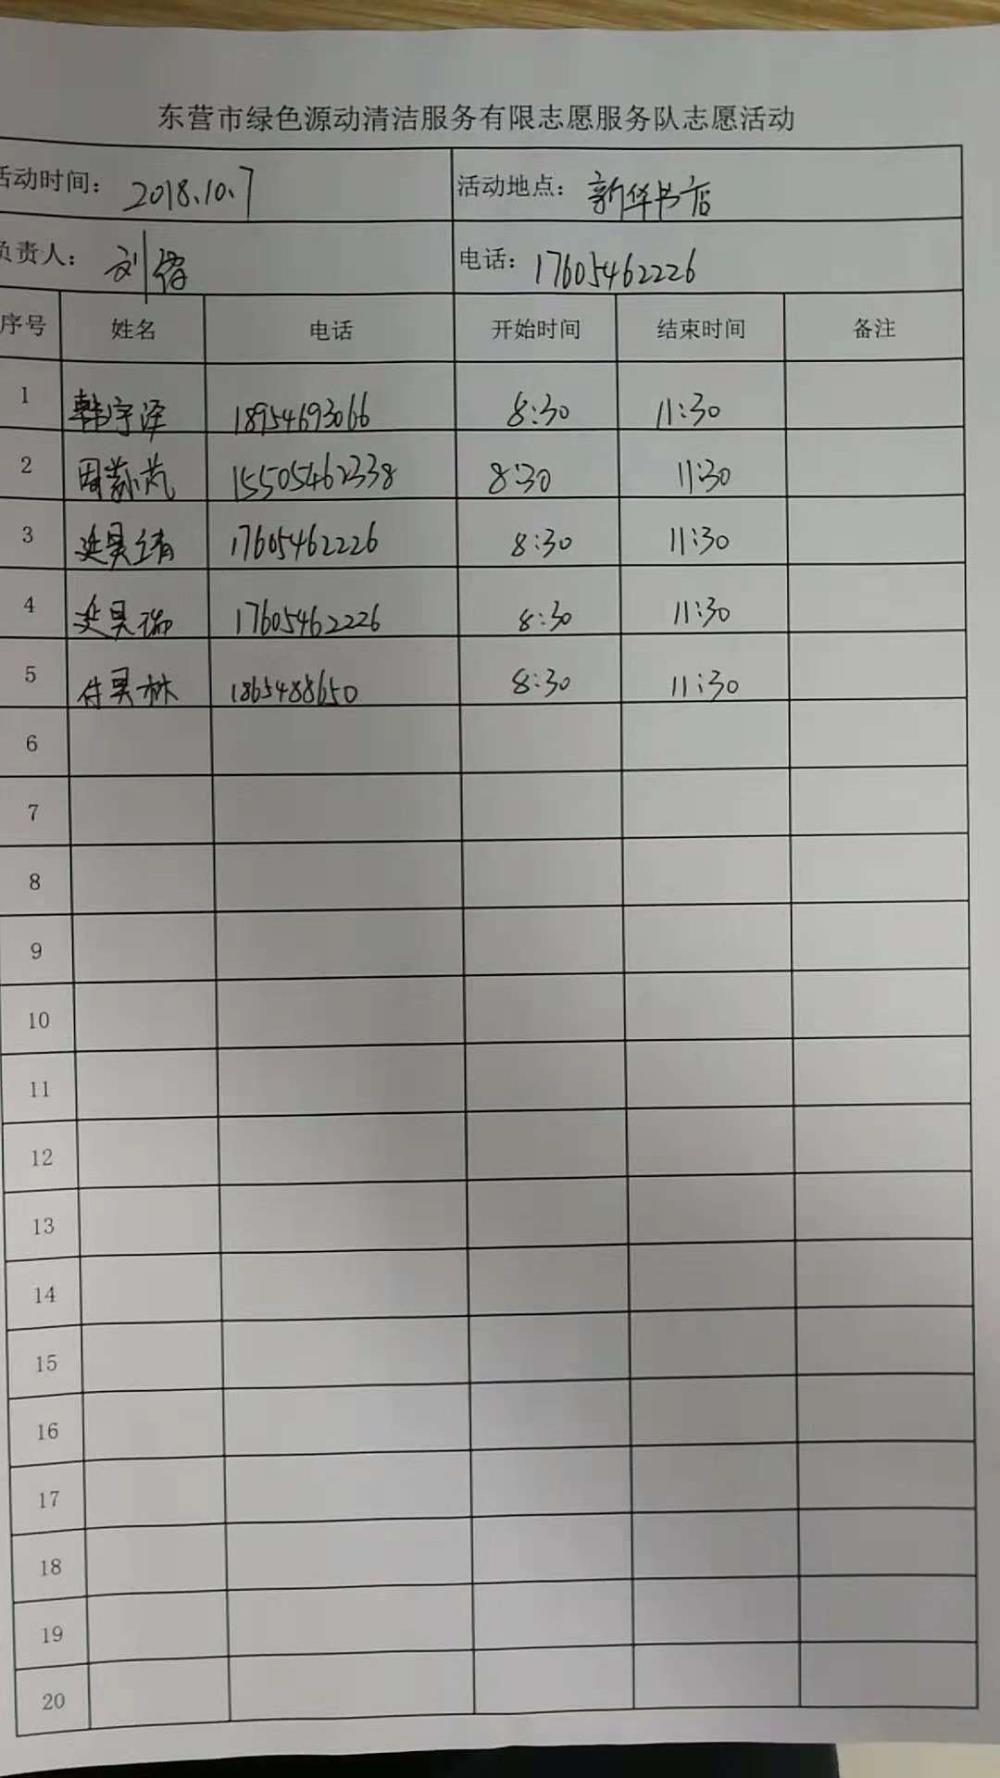 东营市绿色源动清洁服务有限志愿服务队志愿活动
活动时间： 2018.10.7 活动地点： 新华书店
负责人： 刘 电话： 17605462226
序号 姓名 电话 开始时间 结束时间 备注
1 韩宇泽 18954693066 8:30 11:30
2 周 15505462338 8:30 11:30
3 延昊婧 17605462226 8:30 11:30
4 延昊瑞 17605462226 8:30 11:30
5 付昊林 1865488650 8:30 11:30
6
7
8
9
10
11
12
13
14
15
16
17
18
19
20